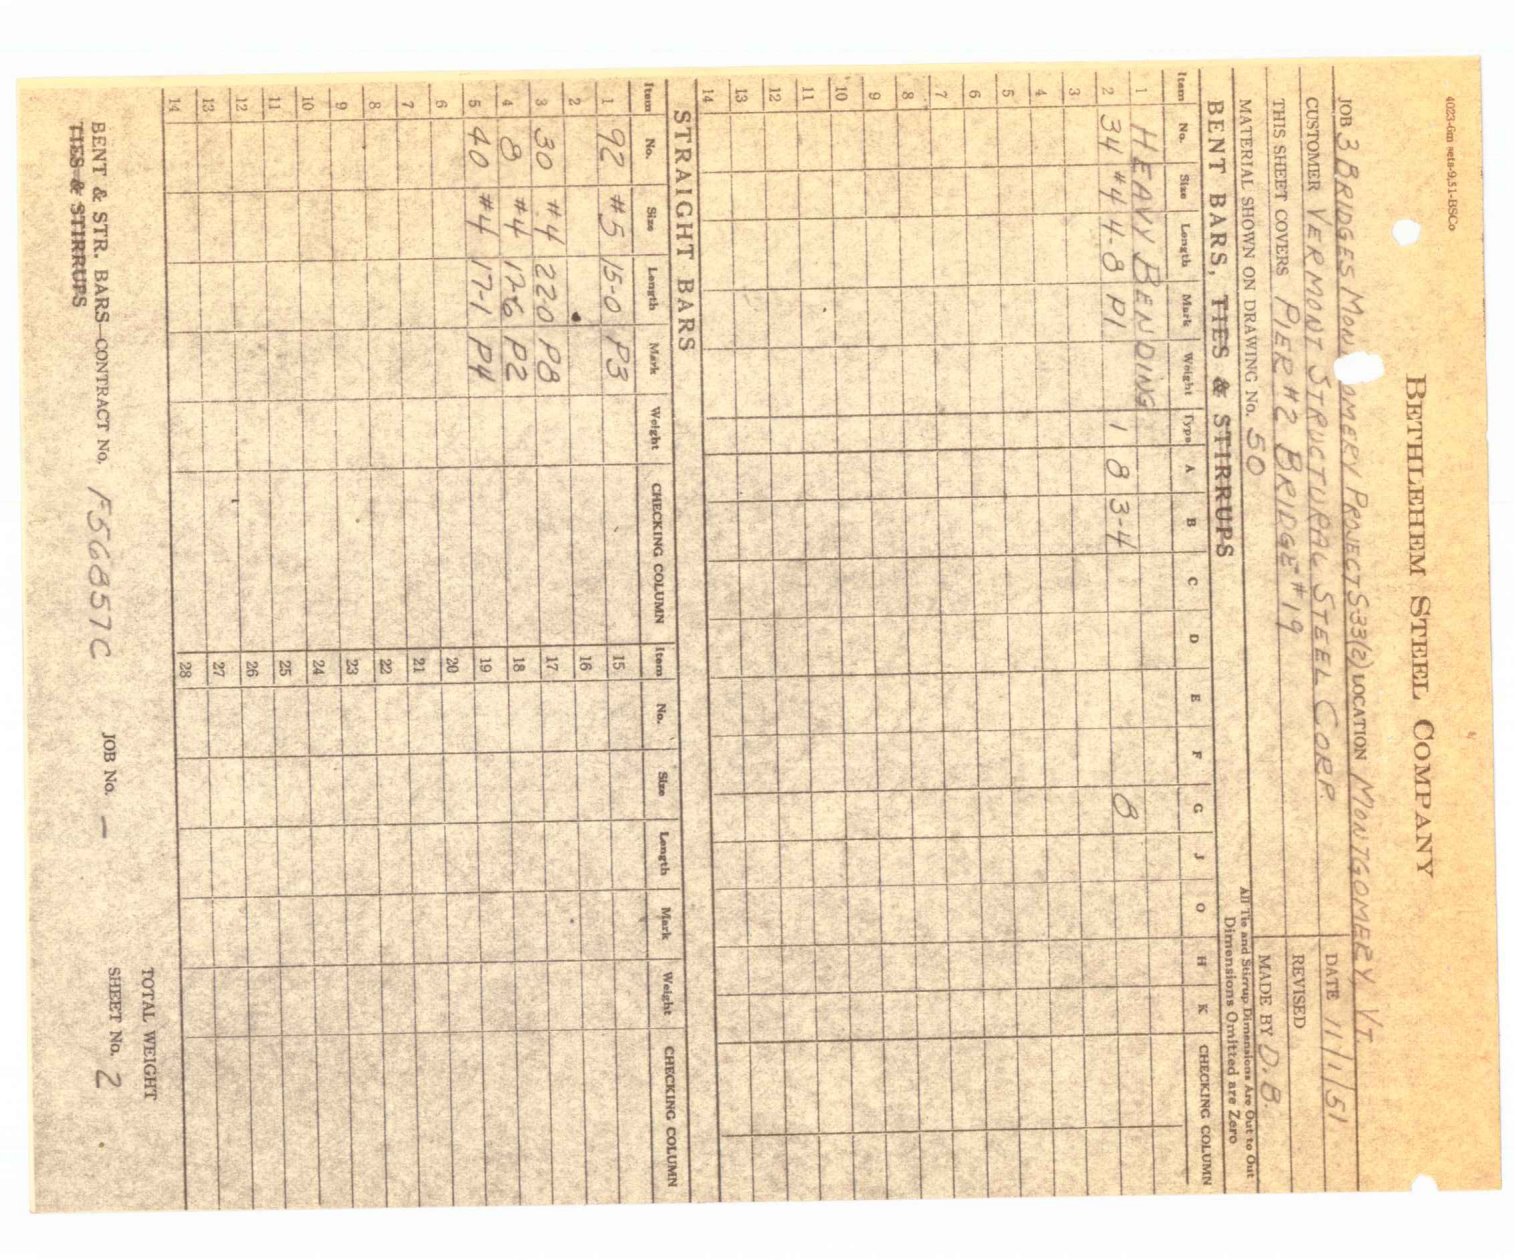 4023-6m sets-9.51-BSCo
BETHLEHEM STEEL COMPANY
JOB 3 BRIDGES MON OMERY PROJECT S33(2) LOCATION MONTGOMERY VT. DATE 11/1/51
CUSTOMER VERMONT STRUCTURAL STEEL CORP REVISED
THIS SHEET COVERS PIER #2 BRIDGE #19 MADE BY D.B.
MATERIAL SHOWN ON DRAWING No. 50
All Tie and Stirrup Dimensions Are Out to Out
BENT BARS, TIES & STIRRUPS Dimensions Omitted are Zero
Item No. Size Length Mark Weight Type A B C D E F G J O H K CHECKING COLUMN
1 HEAVY BENDING
2 34 #4 4-8 P1 1 8 3-4 8
3
4
5
6
7
8
9
10
11
12
13
14
STRAIGHT BARS
Item No. Size Length Mark Weight CHECKING COLUMN Item No. Size Length Mark Weight CHECKING COLUMN
1 92 #5 15-0 P3 15
2 16
3 30 #4 22-0 P8 17
4 8 #4 17-6 P2 18
5 40 #4 17-1 P4 19
6 20
7 21
8 22
9 23
10 24
11 25
12 26
13 27
14 28
TOTAL WEIGHT
BENT & STR. BARS-CONTRACT No. F56857C JOB No. — SHEET No. 2
TIES & STIRRUPS